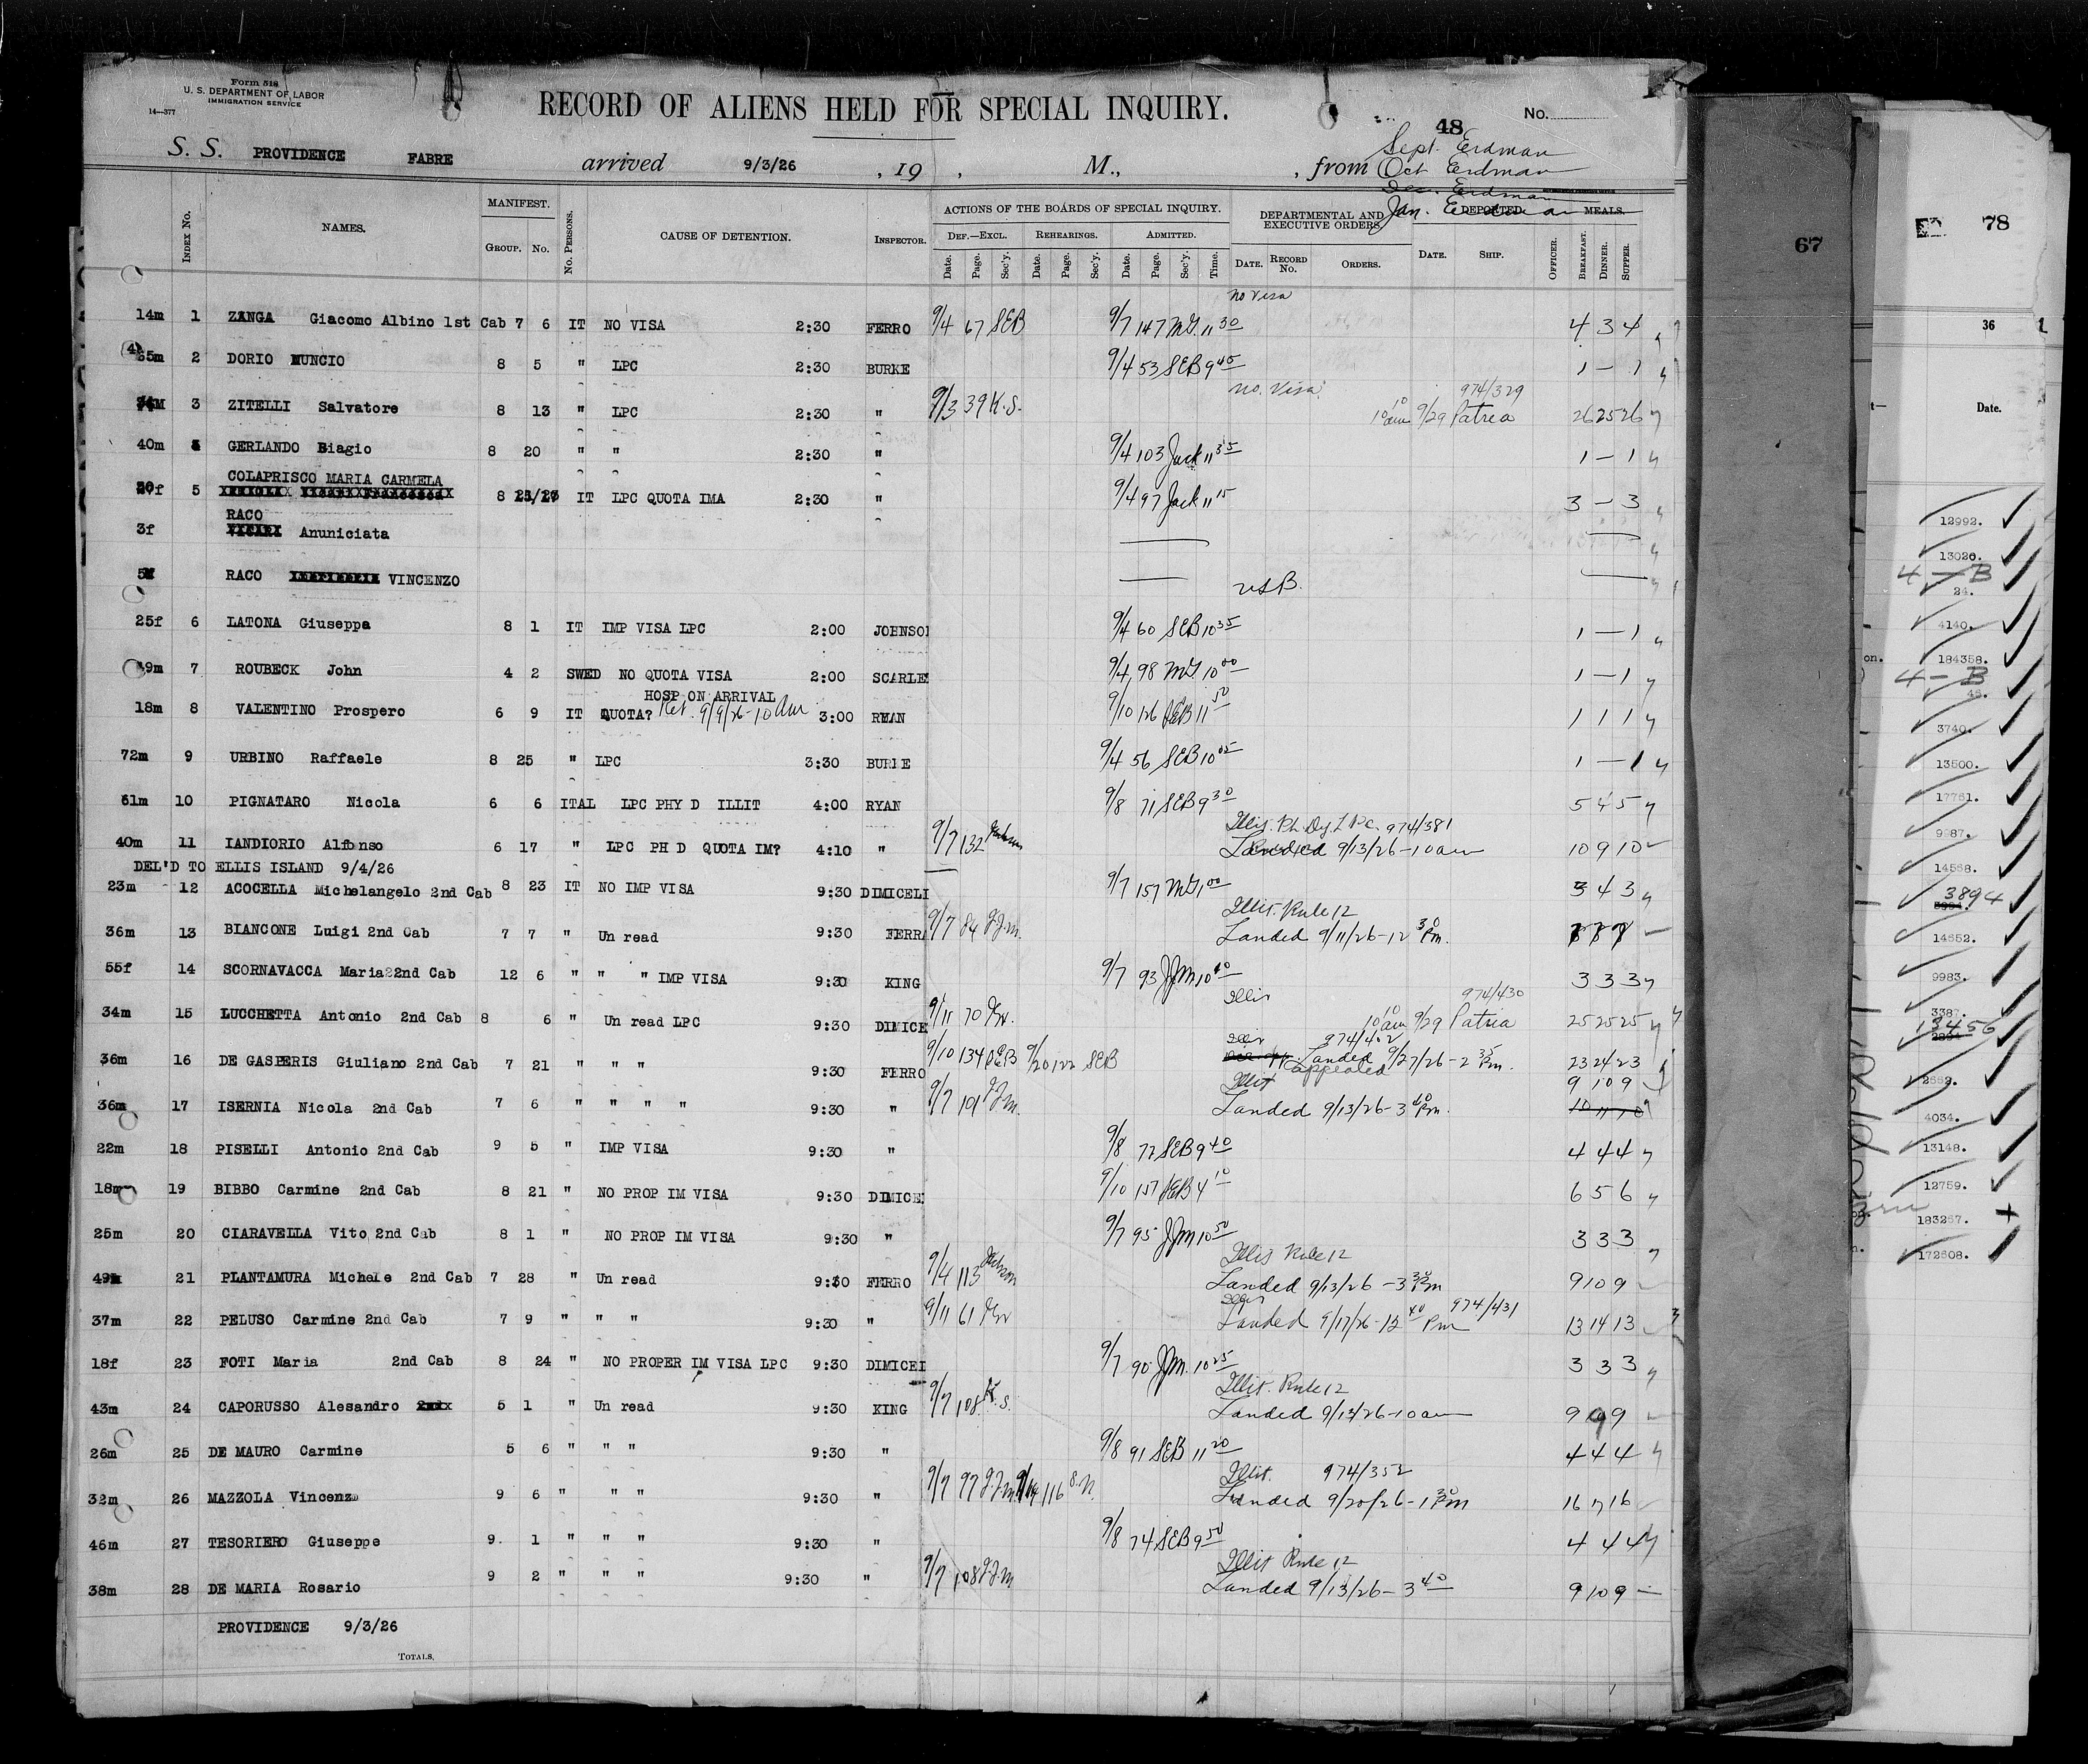 Form 518
U. S. DEPARTMENT OF LABOR
IMMIGRATION SERVICE
14—377
RECORD OF ALIENS HELD FOR SPECIAL INQUIRY.
No.
48
S. S. PROVIDENCE FABRE arrived 9/3/26 , 19 , M., , from
Sept. Erdman
Oct Erdman
Dec. Erdman
Jan. Erdman
INDEX No. NAMES. MANIFEST. GROUP. No. No. PERSONS. CAUSE OF DETENTION. INSPECTOR. ACTIONS OF THE BOARDS OF SPECIAL INQUIRY. DEF.—EXCL. REHEARINGS. ADMITTED. DEPARTMENTAL AND EXECUTIVE ORDERS. DEPORTED. MEALS.
Date. Page. Sec'y. Date. Page. Sec'y. Date. Page. Sec'y. Time. DATE. RECORD No. ORDERS. DATE. SHIP. OFFICER. BREAKFAST. DINNER. SUPPER.
no visa
14m 1 ZANGA Giacomo Albino 1st Cab 7 6 IT NO VISA 2:30 FERRO 9/4 67 SEB 9/7 147 MG. 11 30 4 3 4
2 DORIO MUNCIO 8 5 " LPC 2:30 BURKE 9/4 53 SEB 9 40 1 – 1
no. Visa. 974/329
3 ZITELLI Salvatore 8 13 " LPC 2:30 " 9/3 39 K.S. 10 10 am 9/29 Patria 26 25 26
40m GERLANDO Biagio 8 20 " " 2:30 " 9/4 103 Jack 11 35 1 – 1
COLAPRISCO MARIA CARMELA
5 8 IT LPC QUOTA IMA 2:30 " 9/4 97 Jack 11 15 3 – 3
RACO
3f Anuniciata
RACO VINCENZO
25f 6 LATONA Giuseppa 8 1 IT IMP VISA LPC 2:00 JOHNSON 9/4 60 SEB 10 35 1 – 1
7 ROUBECK John 4 2 SWED NO QUOTA VISA 2:00 SCARLE 9/4 98 MG 10 00 1 – 1
HOSP ON ARRIVAL
18m 8 VALENTINO Prospero 6 9 IT QUOTA? Ret. 9/9/26 - 10 am 3:00 RYAN 9/10 126 SEB 11 50 1 1 1
72m 9 URBINO Raffaele 8 25 " LPC 3:30 BURKE 9/4 56 SEB 10 05 1 – 1
61m 10 PIGNATARO Nicola 6 6 ITAL LPC PHY D ILLIT 4:00 RYAN 9/8 71 SEB 9 30 5 4 5
974/381
40m 11 IANDIORIO Alfonso 6 17 " LPC PH D QUOTA IM? 4:10 " 9/7 132 Landed 9/13/26 - 10 am 10 9 10
DEL'D TO ELLIS ISLAND 9/4/26
23m 12 ACOCELLA Michelangelo 2nd Cab 8 23 IT NO IMP VISA 9:30 DIMICELI 9/7 157 MG 1 00 3 4 3
Illit. Rule 12
36m 13 BIANCONE Luigi 2nd Cab 7 7 " Un read 9:30 FERR 9/7 84 Landed 9/11/26 - 12 30 Pm.
55f 14 SCORNAVACCA Maria 2nd Cab 12 6 " " " IMP VISA 9:30 KING 9/7 93 JJM 10 40 3 3 3
Illit 974/430
34m 15 LUCCHETTA Antonio 2nd Cab 8 6 " Un read LPC 9:30 DIMICE 9/11 70 10 10 am 9/29 Patria 25 25 25
974/402
36m 16 DE GASPERIS Giuliano 2nd Cab 7 21 " " " 9:30 FERRO 9/10 134 SEB 9/20 122 SEB Landed 9/27/26 - 2 35 Pm. 23 24 23
appealed
Illit 9 10 9
36m 17 ISERNIA Nicola 2nd Cab 7 6 " " " " 9:30 " 9/7 101 Landed 9/13/26 - 3 40 Pm. 10 11 10
22m 18 PISELLI Antonio 2nd Cab 9 5 " IMP VISA 9:30 " 9/8 72 SEB 9 40 4 4 4
18m 19 BIBBO Carmine 2nd Cab 8 21 " NO PROP IM VISA 9:30 DIMICE 9/10 157 SEB 4 10 6 5 6
25m 20 CIARAVELLA Vito 2nd Cab 8 1 " NO PROP IM VISA 9:30 " 9/7 95 JJM 10 50 3 3 3
Illit Rule 12
49m 21 PLANTAMURA Michele 2nd Cab 7 28 " Un read 9:30 FERRO 9/4 113 Landed 9/13/26 - 3 30 Pm 9 10 9
Illit 974/431
37m 22 PELUSO Carmine 2nd Cab 7 9 " " " 9:30 " 9/11 61 Landed 9/17/26 - 12 40 Pm 13 14 13
18f 23 FOTI Maria 2nd Cab 8 24 " NO PROPER IM VISA LPC 9:30 DIMICEI 9/7 90 JJM. 10 25 3 3 3
Illit. Rule 12
43m 24 CAPORUSSO Alesandro 5 1 " Un read 9:30 KING 9/7 108 K.S. Landed 9/13/26 - 10 am 9 9 9
26m 25 DE MAURO Carmine 5 6 " " " 9:30 " 9/8 91 SEB 11 20 4 4 4
Illit. 974/352
32m 26 MAZZOLA Vincenzo 9 6 " " " 9:30 " 9/7 97 116 S.N. Landed 9/20/26 - 1 30 Pm 16 17 16
46m 27 TESORIERO Giuseppe 9. 1 " " " 9:30 " 9/8 74 SEB 9 50 4 4 4
Illit Rule 12
38m 28 DE MARIA Rosario 9 2 " " " 9:30 " 9/7 108 Landed 9/13/26 - 3 40 9 10 9
PROVIDENCE 9/3/26
TOTALS.
67
78
36
Date.
12992.
13026.
4 – B
24.
4140.
on. 184358.
4 – B
3740.
13500.
17761.
9987.
14568.
3894
14652.
9983.
3387.
13456
2662.
4034.
13148.
12759.
183267.
172608.